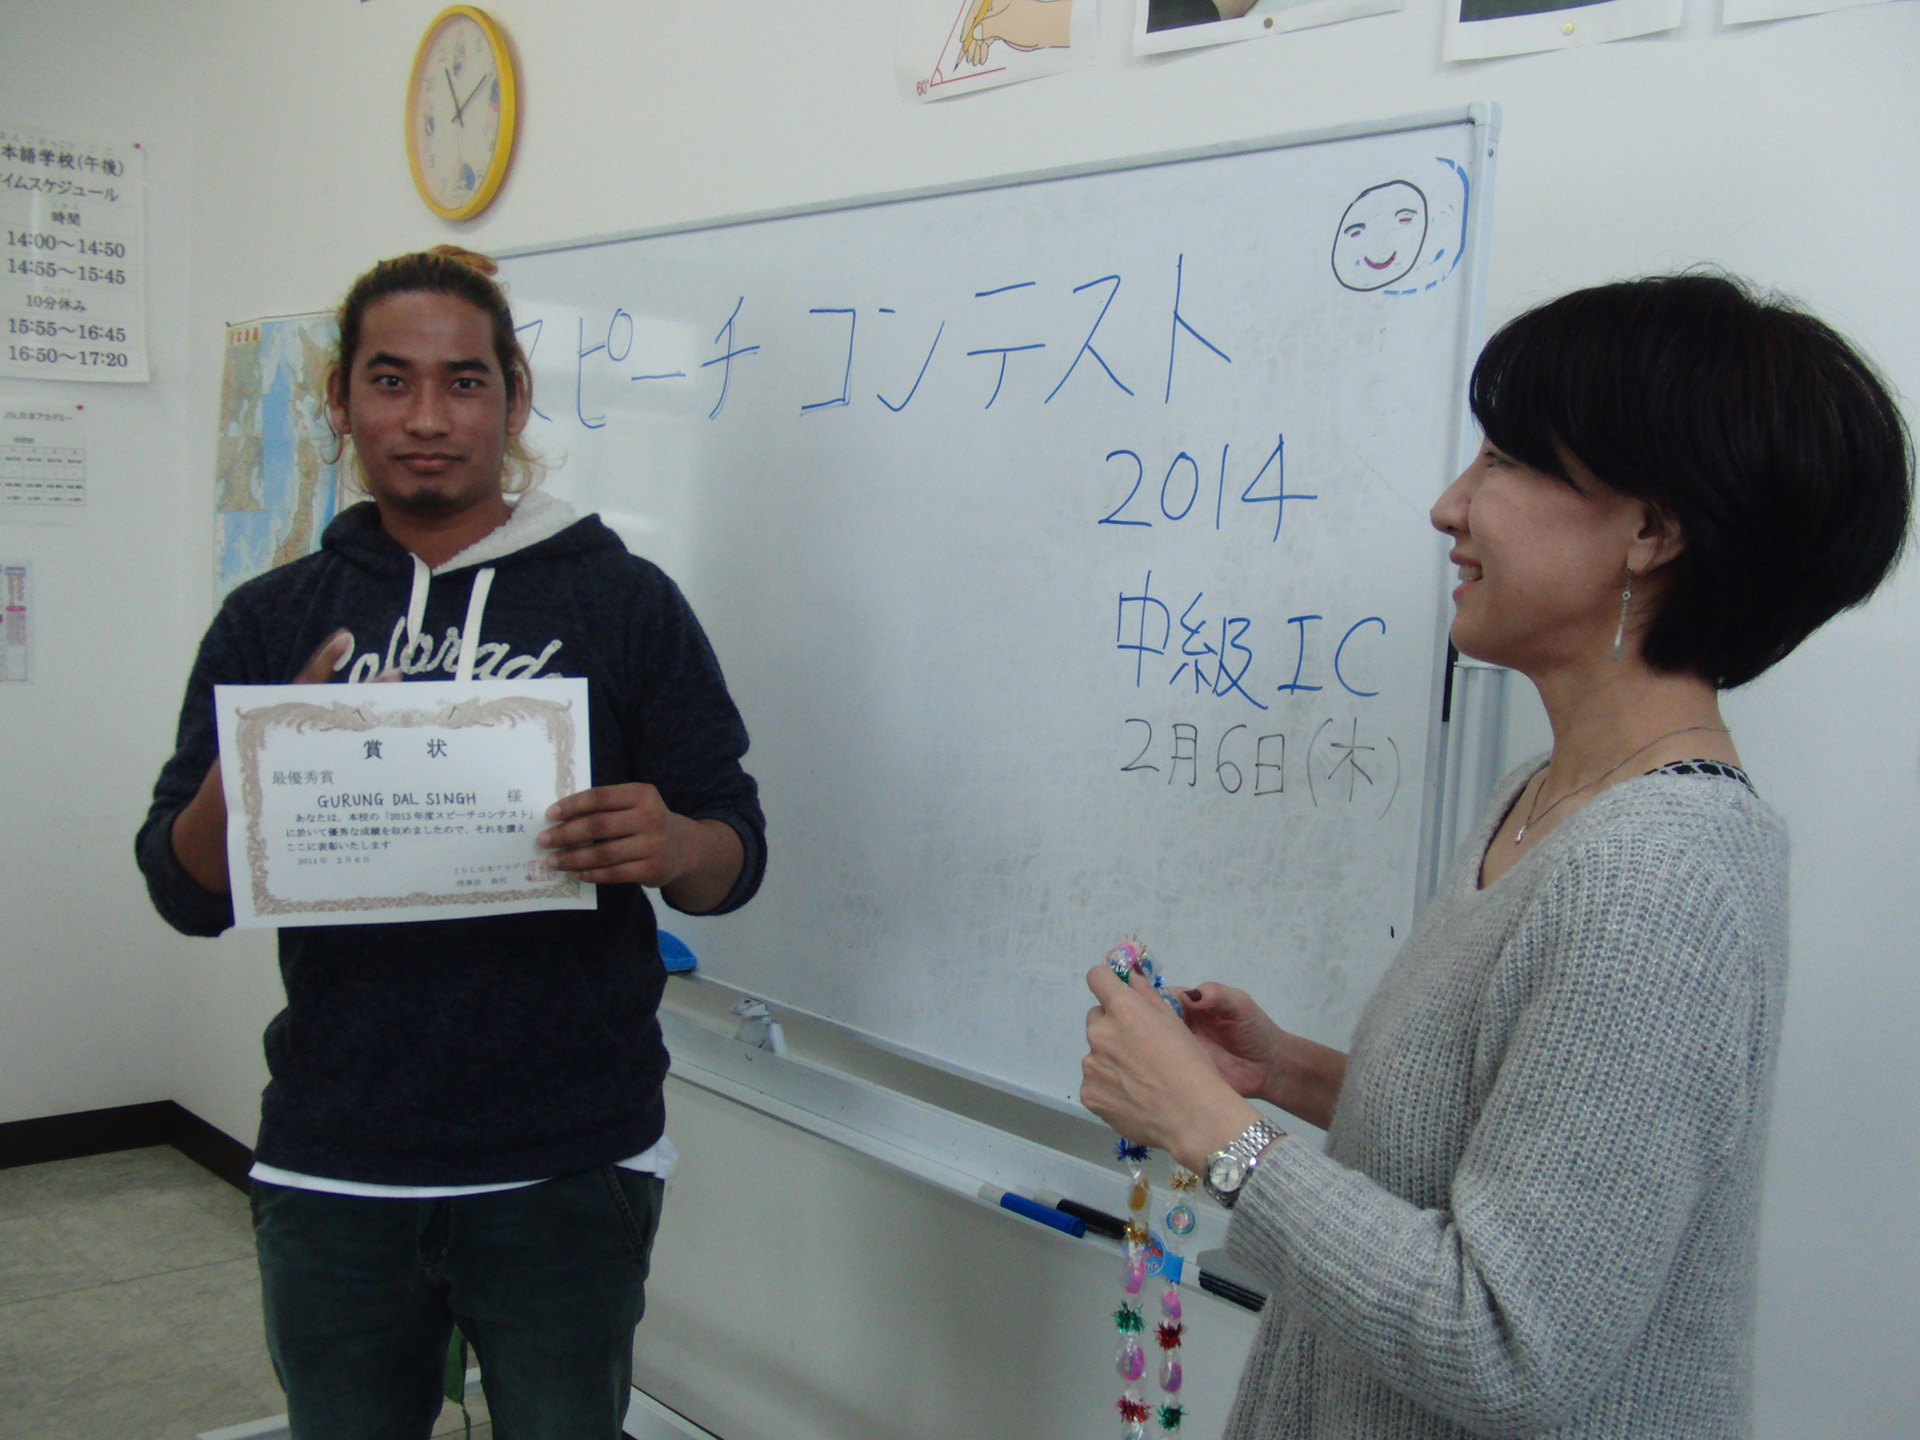 本語学校(午後)
イムスケジュール
時間
14:00～14:50
14:55～15:45
10分休み
15:55～16:45
16:50～17:20
JSL日本アカデミー
60°
スピーチコンテスト
2014
中級IC
2月6日(木)
Colorado
賞 状
最優秀賞
GURUNG DAL SINGH 様
あなたは、本校の「2013年度スピーチコンテスト」
に於いて優秀な成績を収めましたので、それを讃え
ここに表彰いたします
2014年 2月6日
JSL日本アカデミ
理事長